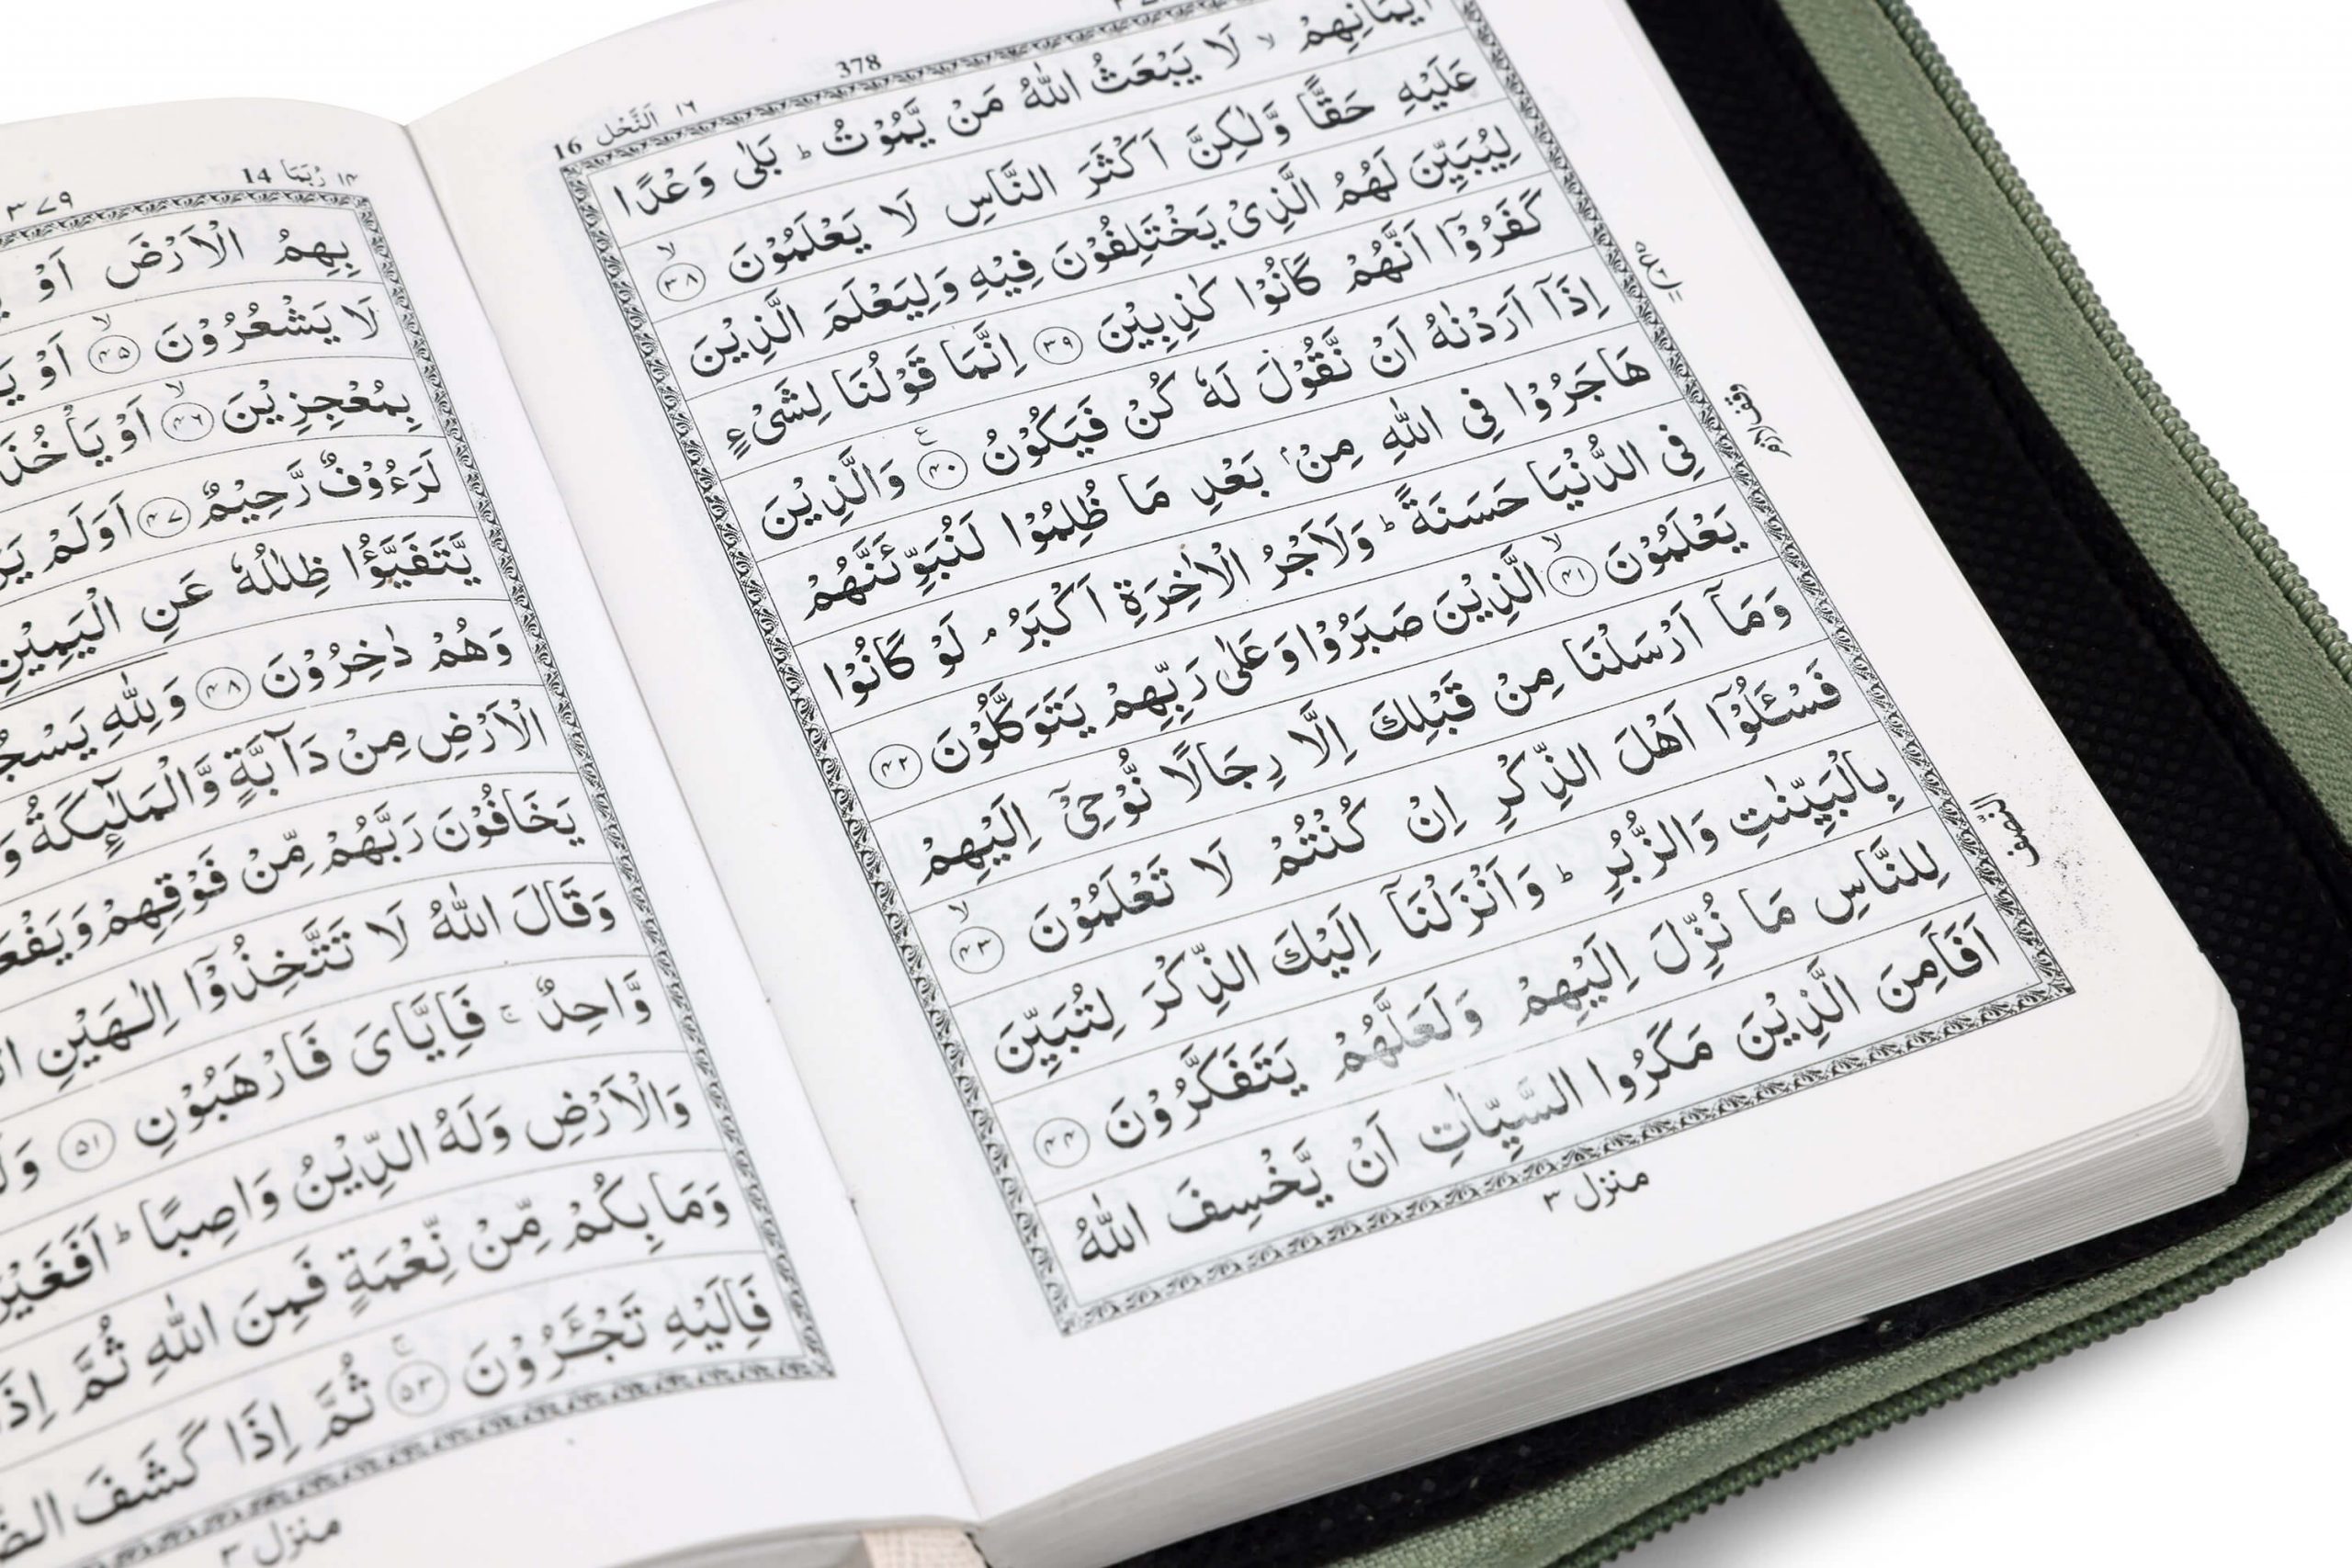 378
16 اَلنَّحْل ١٦
اَيْمَانِهِمْ ۙ لَا يَبْعَثُ اللّٰهُ مَنْ يَّمُوْتُ ؕ بَلٰى وَعْدًا
عَلَيْهِ حَقًّا وَّلٰكِنَّ اَكْثَرَ النَّاسِ لَا يَعْلَمُوْنَ ۙ ﴿۳۸﴾
لِيُبَيِّنَ لَهُمُ الَّذِىْ يَخْتَلِفُوْنَ فِيْهِ وَلِيَعْلَمَ الَّذِيْنَ
كَفَرُوْۤا اَنَّهُمْ كَانُوْا كٰذِبِيْنَ ﴿۳۹﴾ اِنَّمَا قَوْلُنَا لِشَىْءٍ
اِذَاۤ اَرَدْنٰهُ اَنْ نَّقُوْلَ لَهٗ كُنْ فَيَكُوْنُ ﴿۴۰﴾ وَالَّذِيْنَ
هَاجَرُوْا فِى اللّٰهِ مِنْۢ بَعْدِ مَا ظُلِمُوْا لَنُبَوِّئَنَّهُمْ
فِى الدُّنْيَا حَسَنَةً ؕ وَلَاَجْرُ الْاٰخِرَةِ اَكْبَرُ ۘ لَوْ كَانُوْا
يَعْلَمُوْنَ ۙ ﴿۴۱﴾ الَّذِيْنَ صَبَرُوْا وَعَلٰى رَبِّهِمْ يَتَوَكَّلُوْنَ ﴿۴۲﴾
وَمَاۤ اَرْسَلْنَا مِنْ قَبْلِكَ اِلَّا رِجَالًا نُّوْحِىْۤ اِلَيْهِمْ
فَسْئَلُوْۤا اَهْلَ الذِّكْرِ اِنْ كُنْتُمْ لَا تَعْلَمُوْنَ ۙ ﴿۴۳﴾
بِالْبَيِّنٰتِ وَالزُّبُرِ ؕ وَاَنْزَلْنَاۤ اِلَيْكَ الذِّكْرَ لِتُبَيِّنَ
لِلنَّاسِ مَا نُزِّلَ اِلَيْهِمْ وَلَعَلَّهُمْ يَتَفَكَّرُوْنَ ﴿۴۴﴾
اَفَاَمِنَ الَّذِيْنَ مَكَرُوا السَّيِّاٰتِ اَنْ يَّخْسِفَ اللّٰهُ
النصف
منزل ۳
۳۷۹
14 رُبَمَا ۱۴
بِهِمُ الْاَرْضَ اَوْ
لَا يَشْعُرُوْنَ ۙ ﴿۴۵﴾ اَوْ
بِمُعْجِزِيْنَ ۙ ﴿۴۶﴾ اَوْ يَاْخُذَ
لَرَءُوْفٌ رَّحِيْمٌ ﴿۴۷﴾ اَوَلَمْ
يَّتَفَيَّؤُا ظِلٰلُهٗ عَنِ الْيَمِيْنِ
وَهُمْ دٰخِرُوْنَ ﴿۴۸﴾ وَلِلّٰهِ
الْاَرْضِ مِنْ دَآبَّةٍ وَّالْمَلٰٓئِكَةُ
يَخَافُوْنَ رَبَّهُمْ مِّنْ فَوْقِهِمْ
وَقَالَ اللّٰهُ لَا تَتَّخِذُوْۤا اِلٰهَيْنِ
وَّاحِدٌ ۚ فَاِيَّاىَ فَارْهَبُوْنِ ﴿۵۱﴾
وَالْاَرْضِ وَلَهُ الدِّيْنُ وَاصِبًا ؕ اَفَغَيْرَ
وَمَا بِكُمْ مِّنْ نِّعْمَةٍ فَمِنَ اللّٰهِ ثُمَّ
فَاِلَيْهِ تَجْئَرُوْنَ ۚ ﴿۵۳﴾ ثُمَّ اِذَا كَشَفَ
منزل ۳